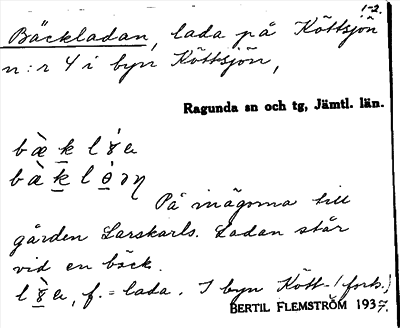 1-2.
Bäckladan, lada på Köttsjön
n:r 4 i byn Köttsjön,
Ragunda sn och tg, Jämtl. län.
På mägorna till
gården Larskarls. Ladan står
vid en bäck.
f. = lada. I byn Kött- (forts.)
BERTIL FLEMSTRÖM 1937.